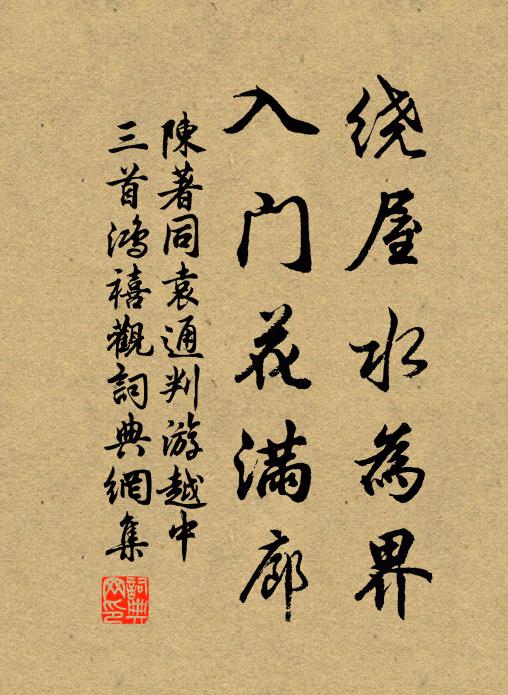 绕屋水為界
入门花满廊
陳著同袁通判游越中
三首鴻禧觀詞典網集
詞典网印